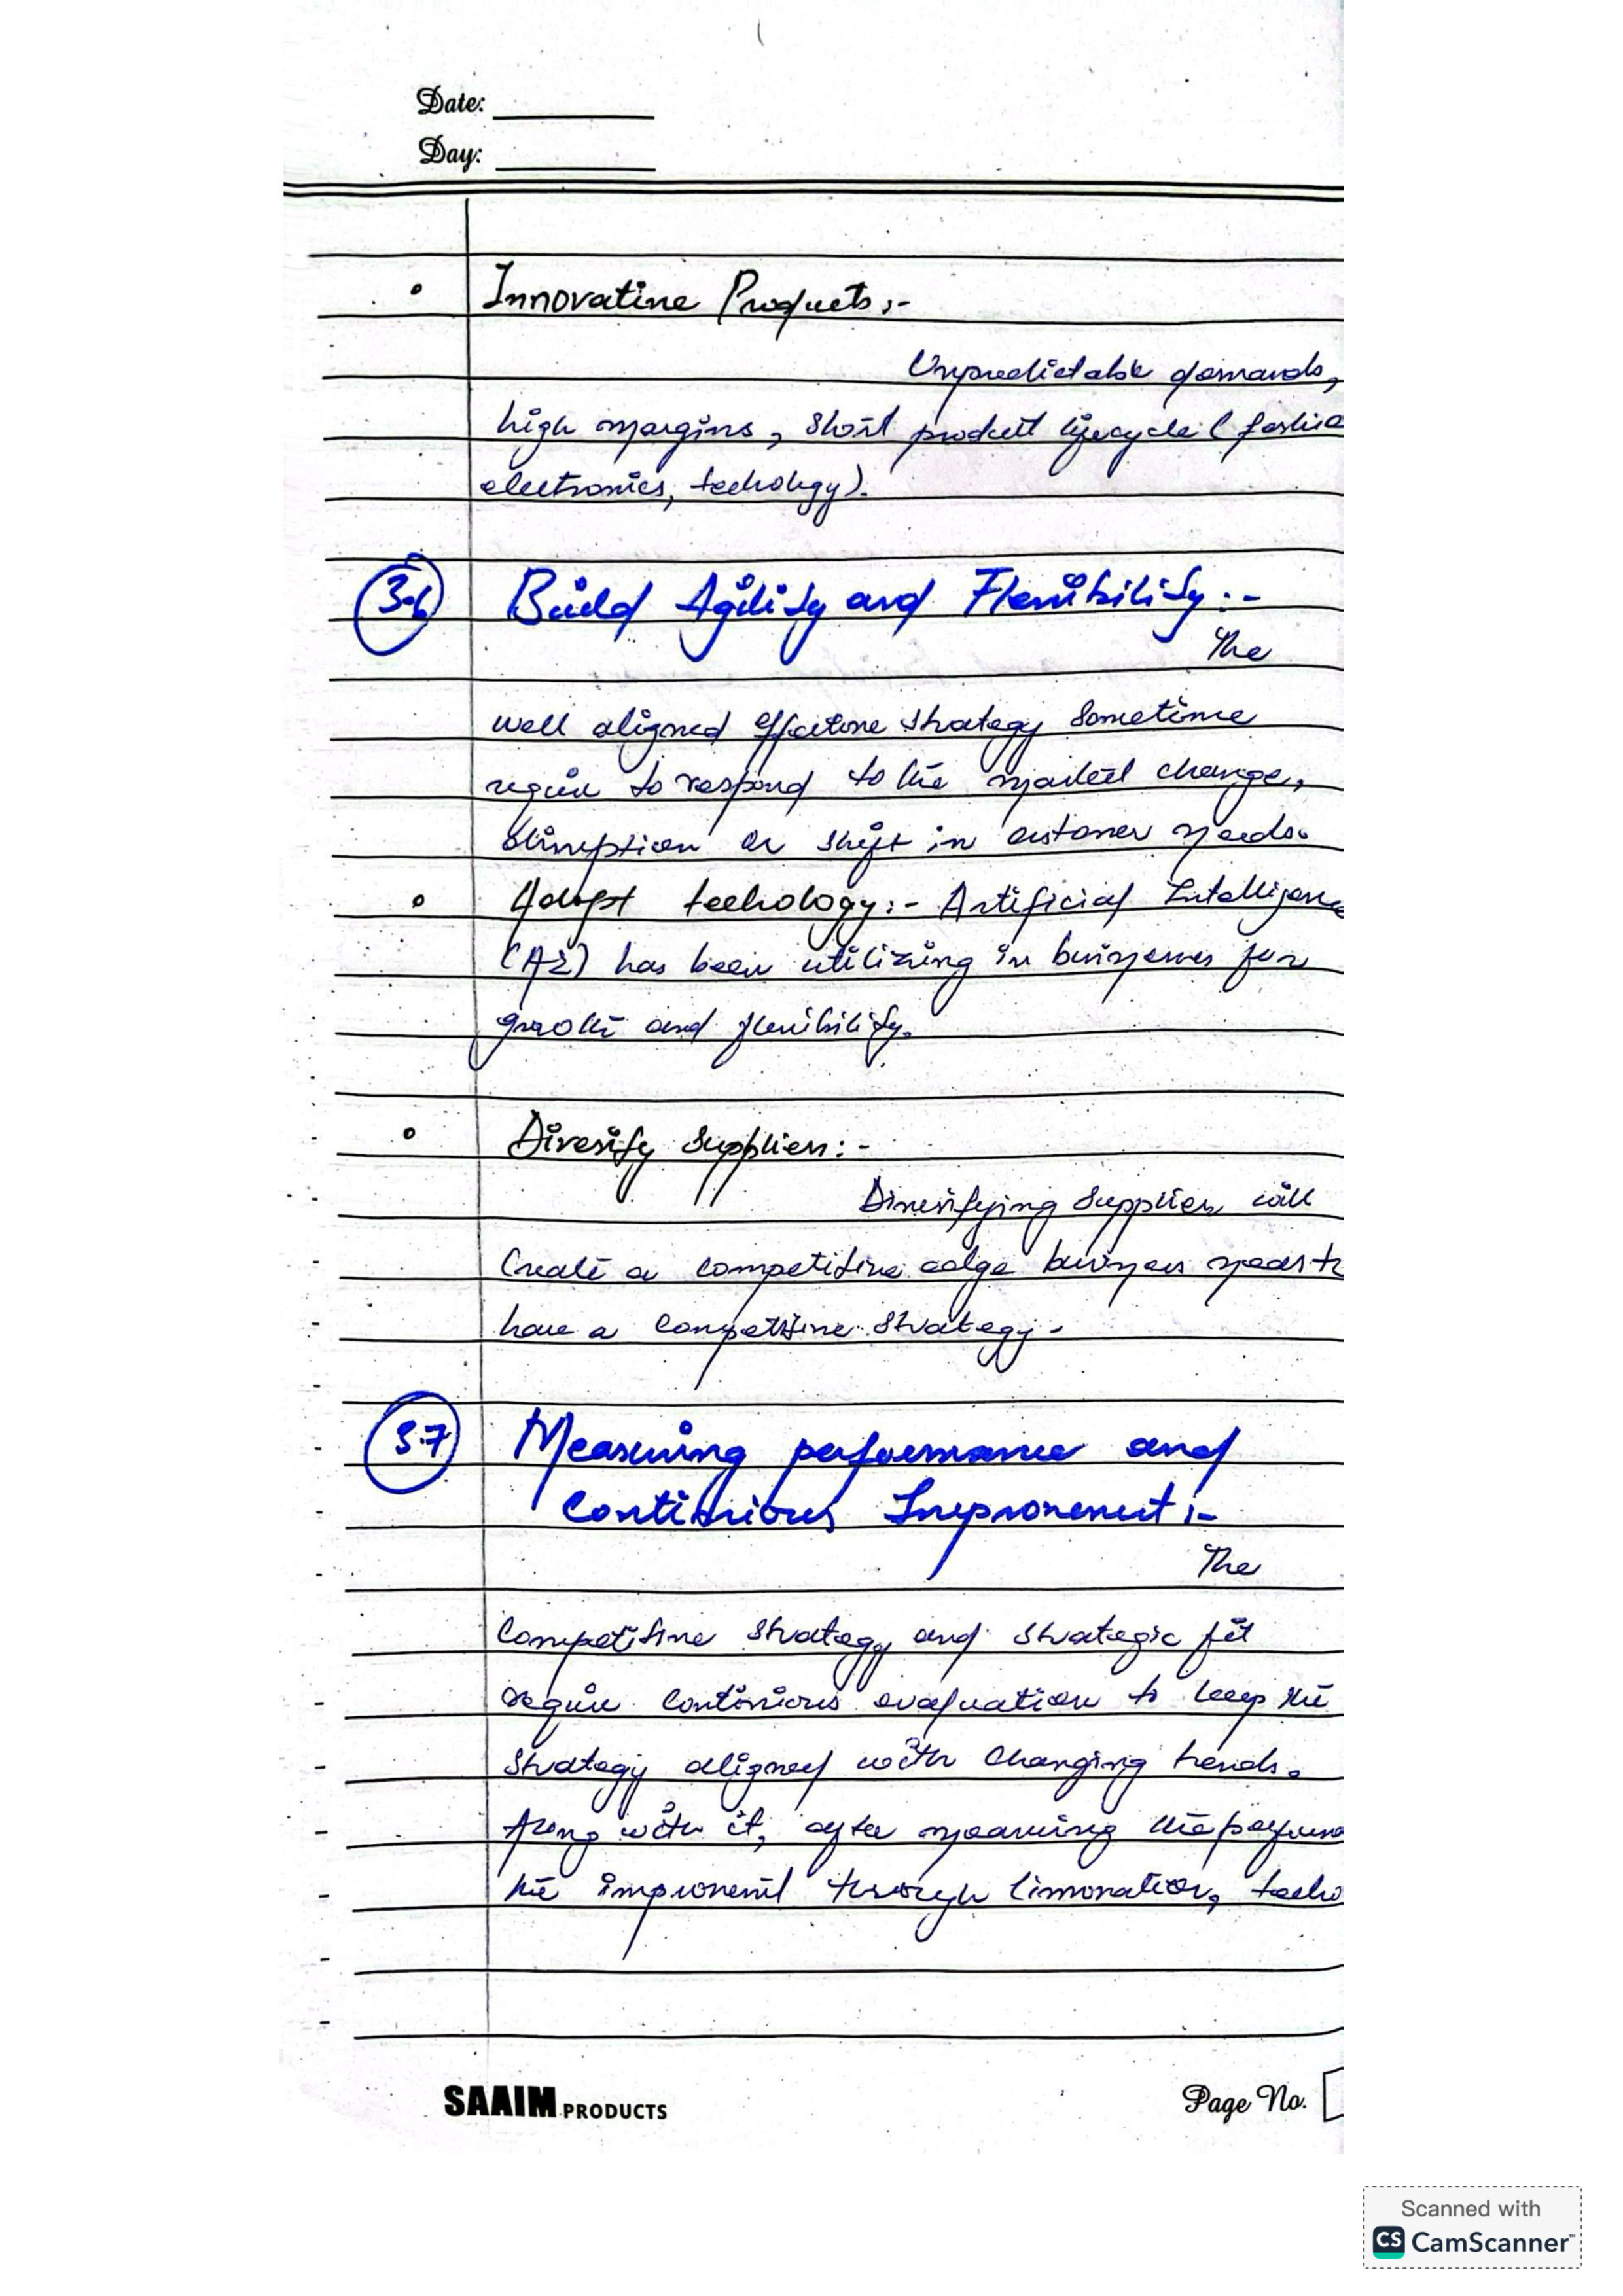 Date:
Day:
Innovative Products:-
Unpredictable demands,
high margins, short product lifecycle (fashio
electronics, techology).
3.6 Build Agility and Flexibility:-
The
well aligned effective strategy sometime
require to respond to the market change,
disruption or shift in customer needs.
Adopt techology:- Artificial Intelligence
(AI) has been utilizing in businesses for
growth and flexibility.
Diversify Suppliers:-
Diversifying Suppliers will
Create a competitive edge business needs to
have a competitive strategy.
3.7 Measuring performance and
Continious Improvement:-
The
Competitive strategy and strategic fit
require continious evaluation to keep the
strategy aligned with changing trends.
Along with it, after measuring the performa
the improvement through innovation, techo
SAAIM PRODUCTS
Page No.
Scanned with
CS CamScanner